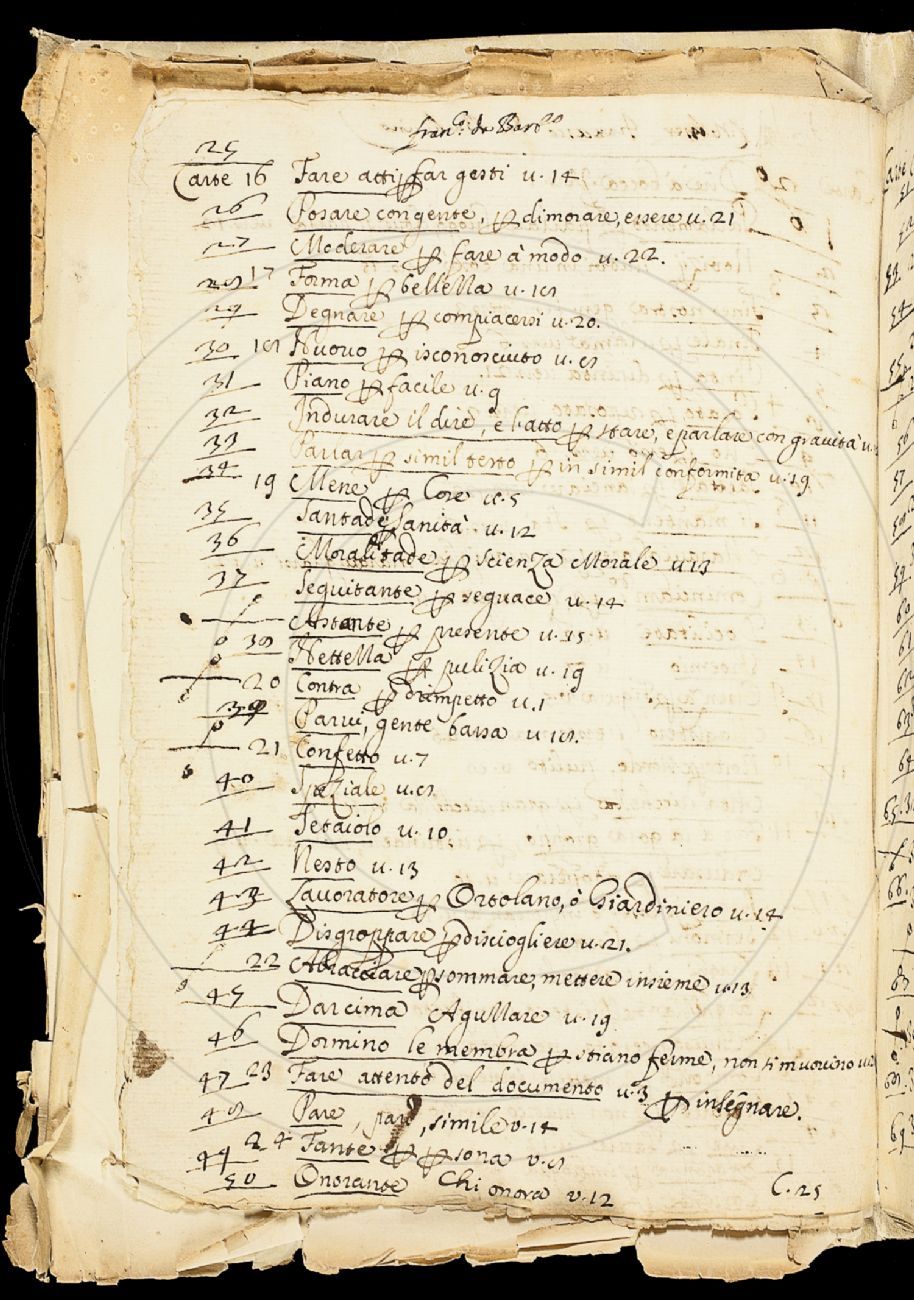 Fran.º da Barb.º
25
Carte 16 Fare atti ꝑ far gesti v. 14
26 Posare con gente, ꝑ dimorare, essere v. 21
27 Moderare ꝑ fare à modo v. 22.
28 17 Forma ꝑ bellezza v. 18
29 Degnare ꝑ compiacersi v. 20.
30 18 Nuovo ꝑ isconosciuto v. 8
31 Piano ꝑ facile v. 9
32 Indurare il dire, e l'atto ꝑ stare, e parlare con gravità v.
33 Parlar ꝑ simil testo ꝑ in simil conformità v. 19
34 19 Mene ꝑ Cose v. 5
35 Santade Sanità v. 12
36 Moralitade ꝑ scienza Morale v. 13
37 Seguitante ꝑ seguace v. 14
Astante ꝑ presente v. 15
38 Nettezza ꝑ pulizia v. 19
20 Contra ꝑ dirimpetto v. 1
39 Parvi, gente bassa v. 18.
21 Confetto v. 7
40 Speziale v. 8
41 Setaiolo v. 10
42 Nesto v. 13
43 Lavoratore ꝑ Ortolano, ò Giardiniero v. 14
44 Disgroppare ꝑ disciogliere v. 21.
22 Abracciare ꝑ sommare, mettere insieme v. 13
45 Darcima Aguzzare v. 19
46 Dormino le membra ꝑ stiano ferme, non si muovino
47 23 Fare attento del documento v. 3 ꝑ insegnare.
48 Pare, pari, simile v. 14
49 24 Fante ꝑ ꝑsona v. 8
50 Onorante Chi onora v. 12
C. 25